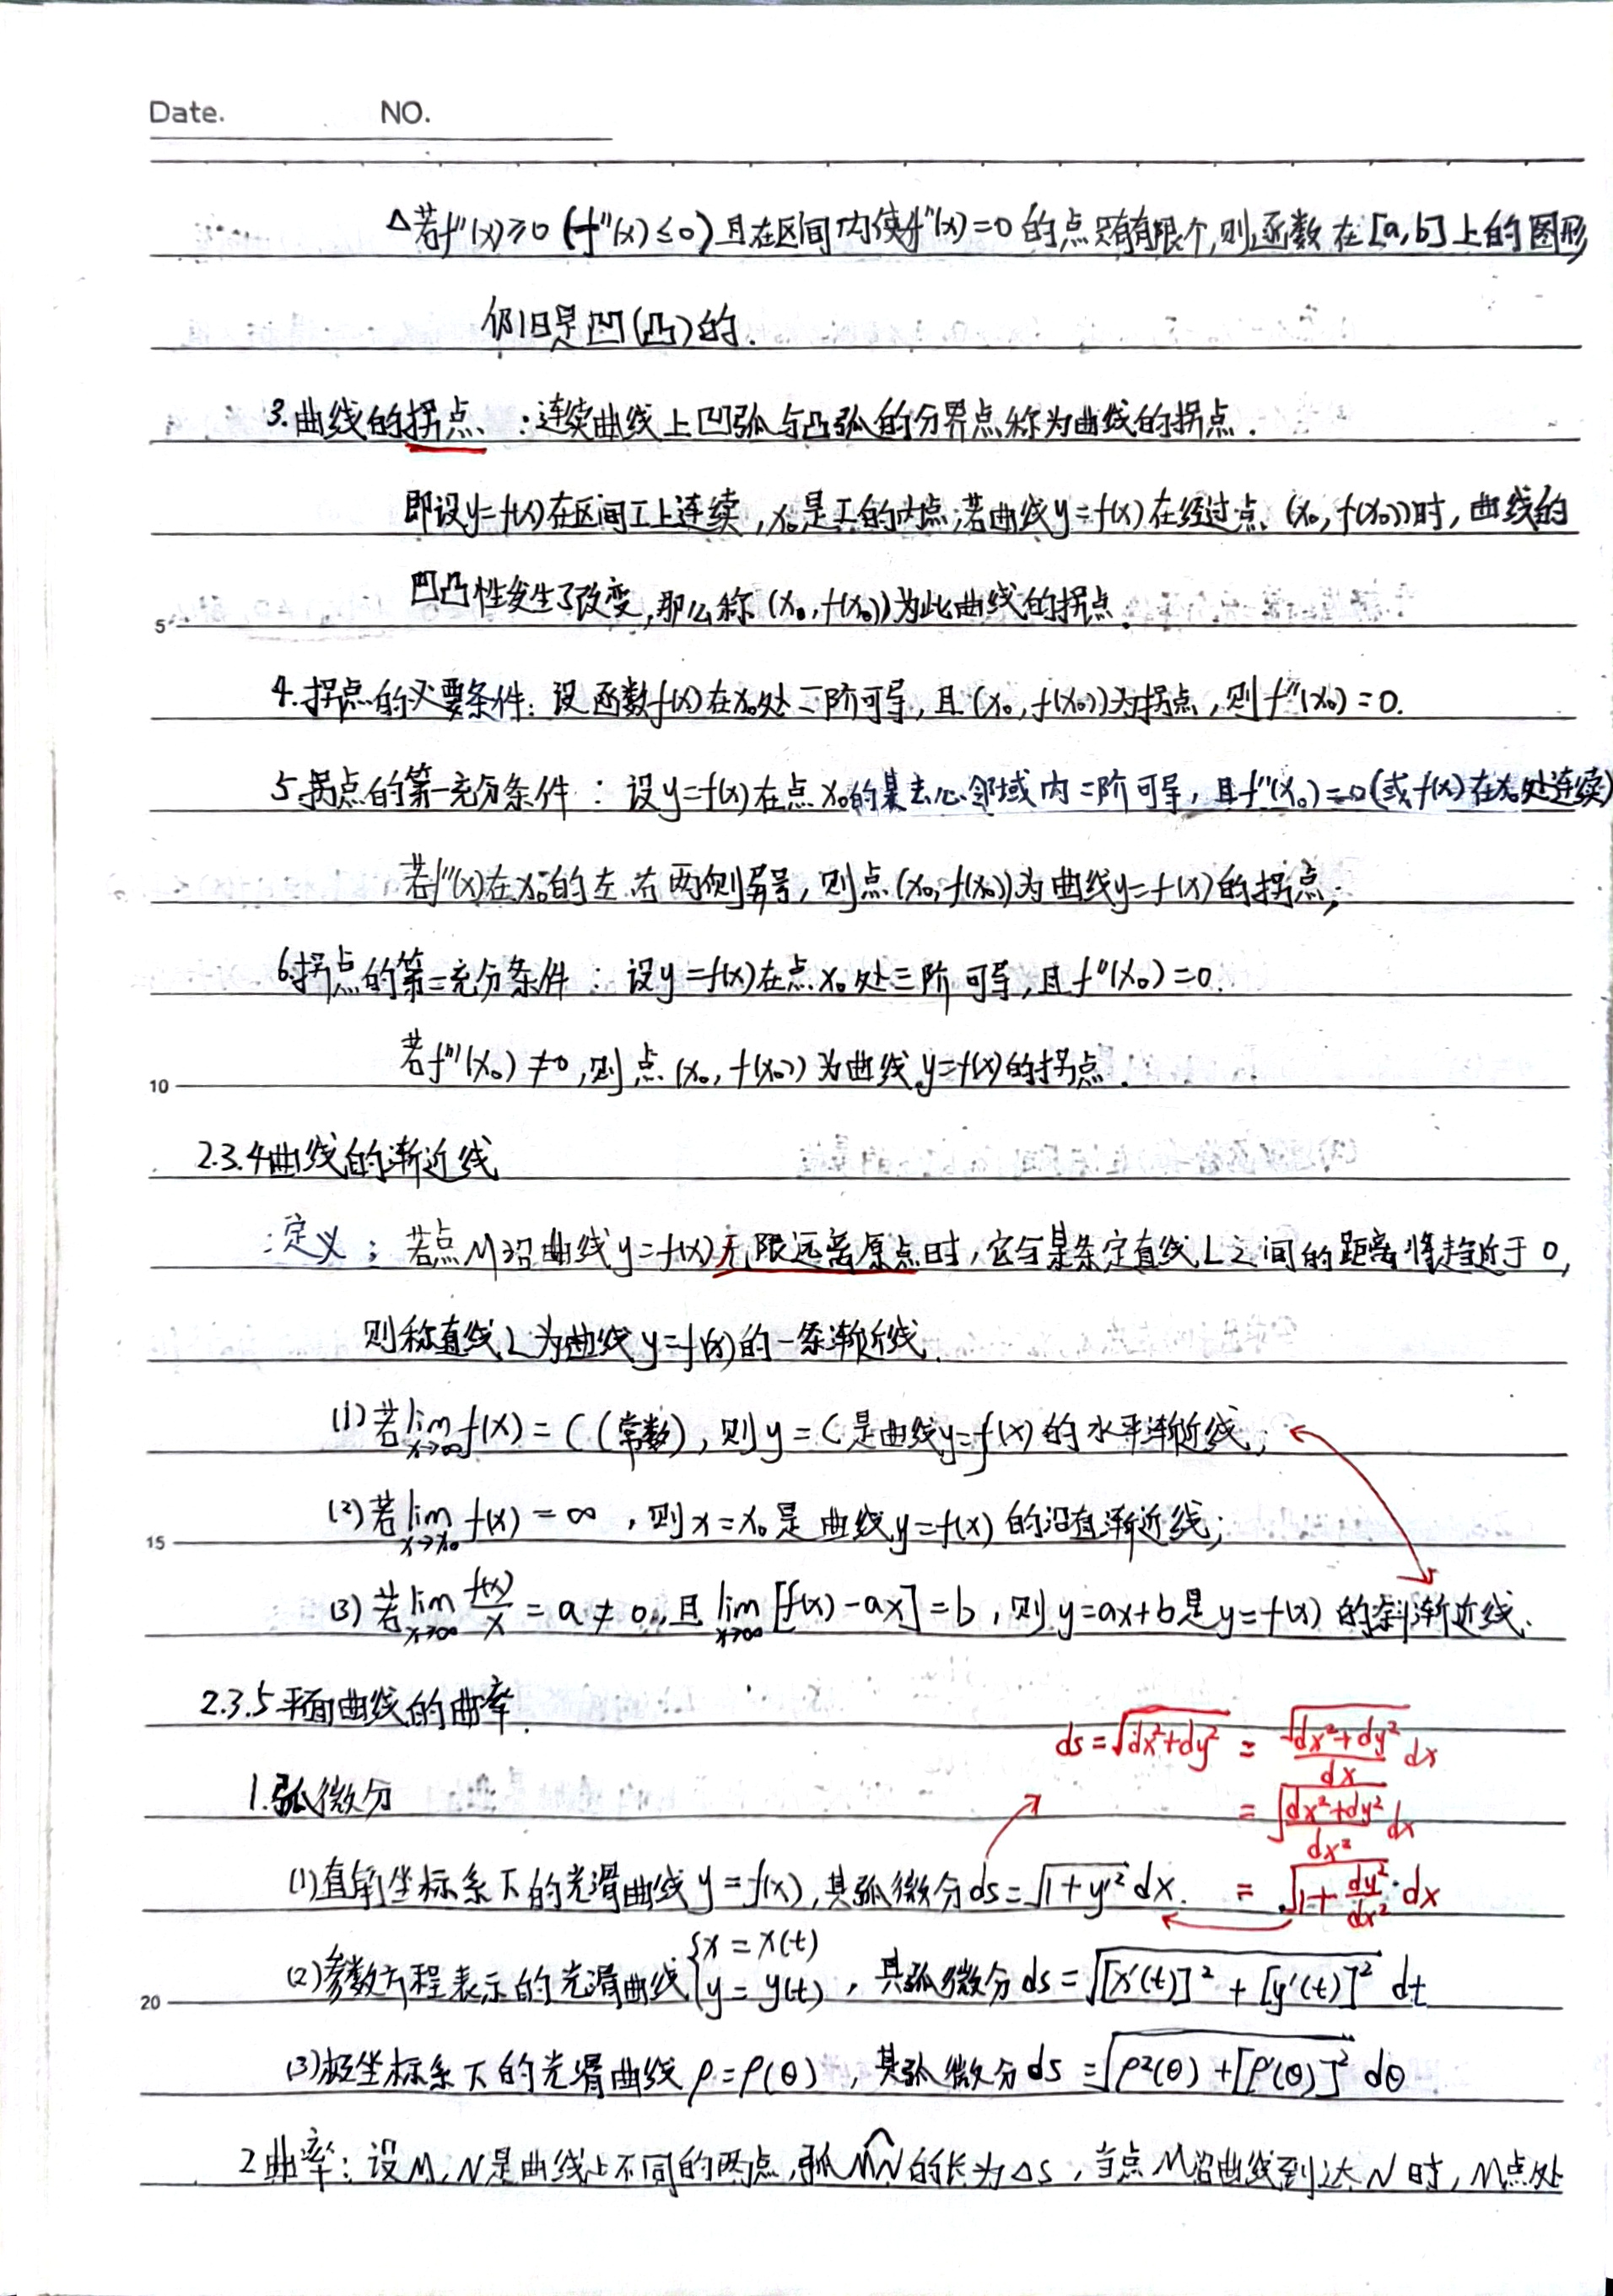 Date. NO.
△若f''(x)≥0 (f''(x)≤0)且在区间内使f''(x)=0的点只有有限个,则函数在[a,b]上的图形
仍旧是凹(凸)的.
3.曲线的拐点:连续曲线上凹弧与凸弧的分界点称为曲线的拐点.
即设y=f(x)在区间I上连续,x₀是I的内点;若曲线y=f(x)在经过点(x₀,f(x₀))时,曲线的
凹凸性发生了改变,那么称(x₀,f(x₀))为此曲线的拐点.
5
4.拐点的必要条件:设函数f(x)在x₀处二阶可导,且(x₀,f(x₀))为拐点,则f''(x₀)=0.
5拐点的第一充分条件:设y=f(x)在点x₀的某去心邻域内二阶可导,且f''(x₀)=0(或f(x)在x₀处连续)
若f''(x)在x₀的左右两侧异号,则点(x₀,f(x₀))为曲线y=f(x)的拐点;
6.拐点的第二充分条件:设y=f(x)在点x₀处三阶可导,且f''(x₀)=0.
若f'''(x₀)≠0,则点(x₀,f(x₀))为曲线y=f(x)的拐点.
10
2.3.4曲线的渐近线
:定义:若点M沿曲线y=f(x)无限远离原点时,它与某条定直线L之间的距离将趋近于0,
则称直线L为曲线y=f(x)的一条渐近线.
(1)若lim x→∞ f(x)=C(常数),则y=C是曲线y=f(x)的水平渐近线;
(2)若lim x→x₀ f(x)=∞,则x=x₀是曲线y=f(x)的沿直渐近线;
15
(3)若lim x→∞ f(x)/x=a≠0,且lim x→∞ [f(x)-ax]=b,则y=ax+b是y=f(x)的斜渐近线.
2.3.5平面曲线的曲率.
ds=√(dx²+dy²) = √(dx²+dy²)/dx dx
1.弧微分
=√((dx²+dy²)/dx²) dx
(1)直角坐标系下的光滑曲线y=f(x),其弧微分ds=√(1+y'²) dx. =√(1+dy²/dx²)·dx
(2)参数方程表示的光滑曲线{x=x(t) y=y(t),其弧微分ds=√([x'(t)]²+[y'(t)]²) dt
20
(3)极坐标系下的光滑曲线ρ=ρ(θ),其弧微分ds=√(ρ²(θ)+[ρ'(θ)]²) dθ
2曲率:设M,N是曲线上不同的两点,弧MN的长为△S,当点M沿曲线到达N时,M点处